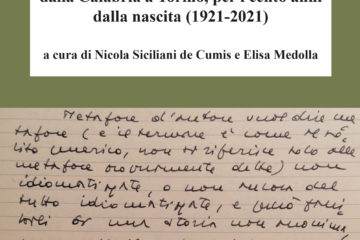 dalla Calabria a Torino, per i cento anni
dalla nascita (1921-2021)
a cura di Nicola Siciliani de Cumis e Elisa Medolla
Metafore d'autore vuol dire me
tafore (e il termine è come
non si riferisce solo alle
metafore propriamente dette) non
idiomatizzate, o non ancora del
tutto idiomatizzate, e
una storia non anonima,